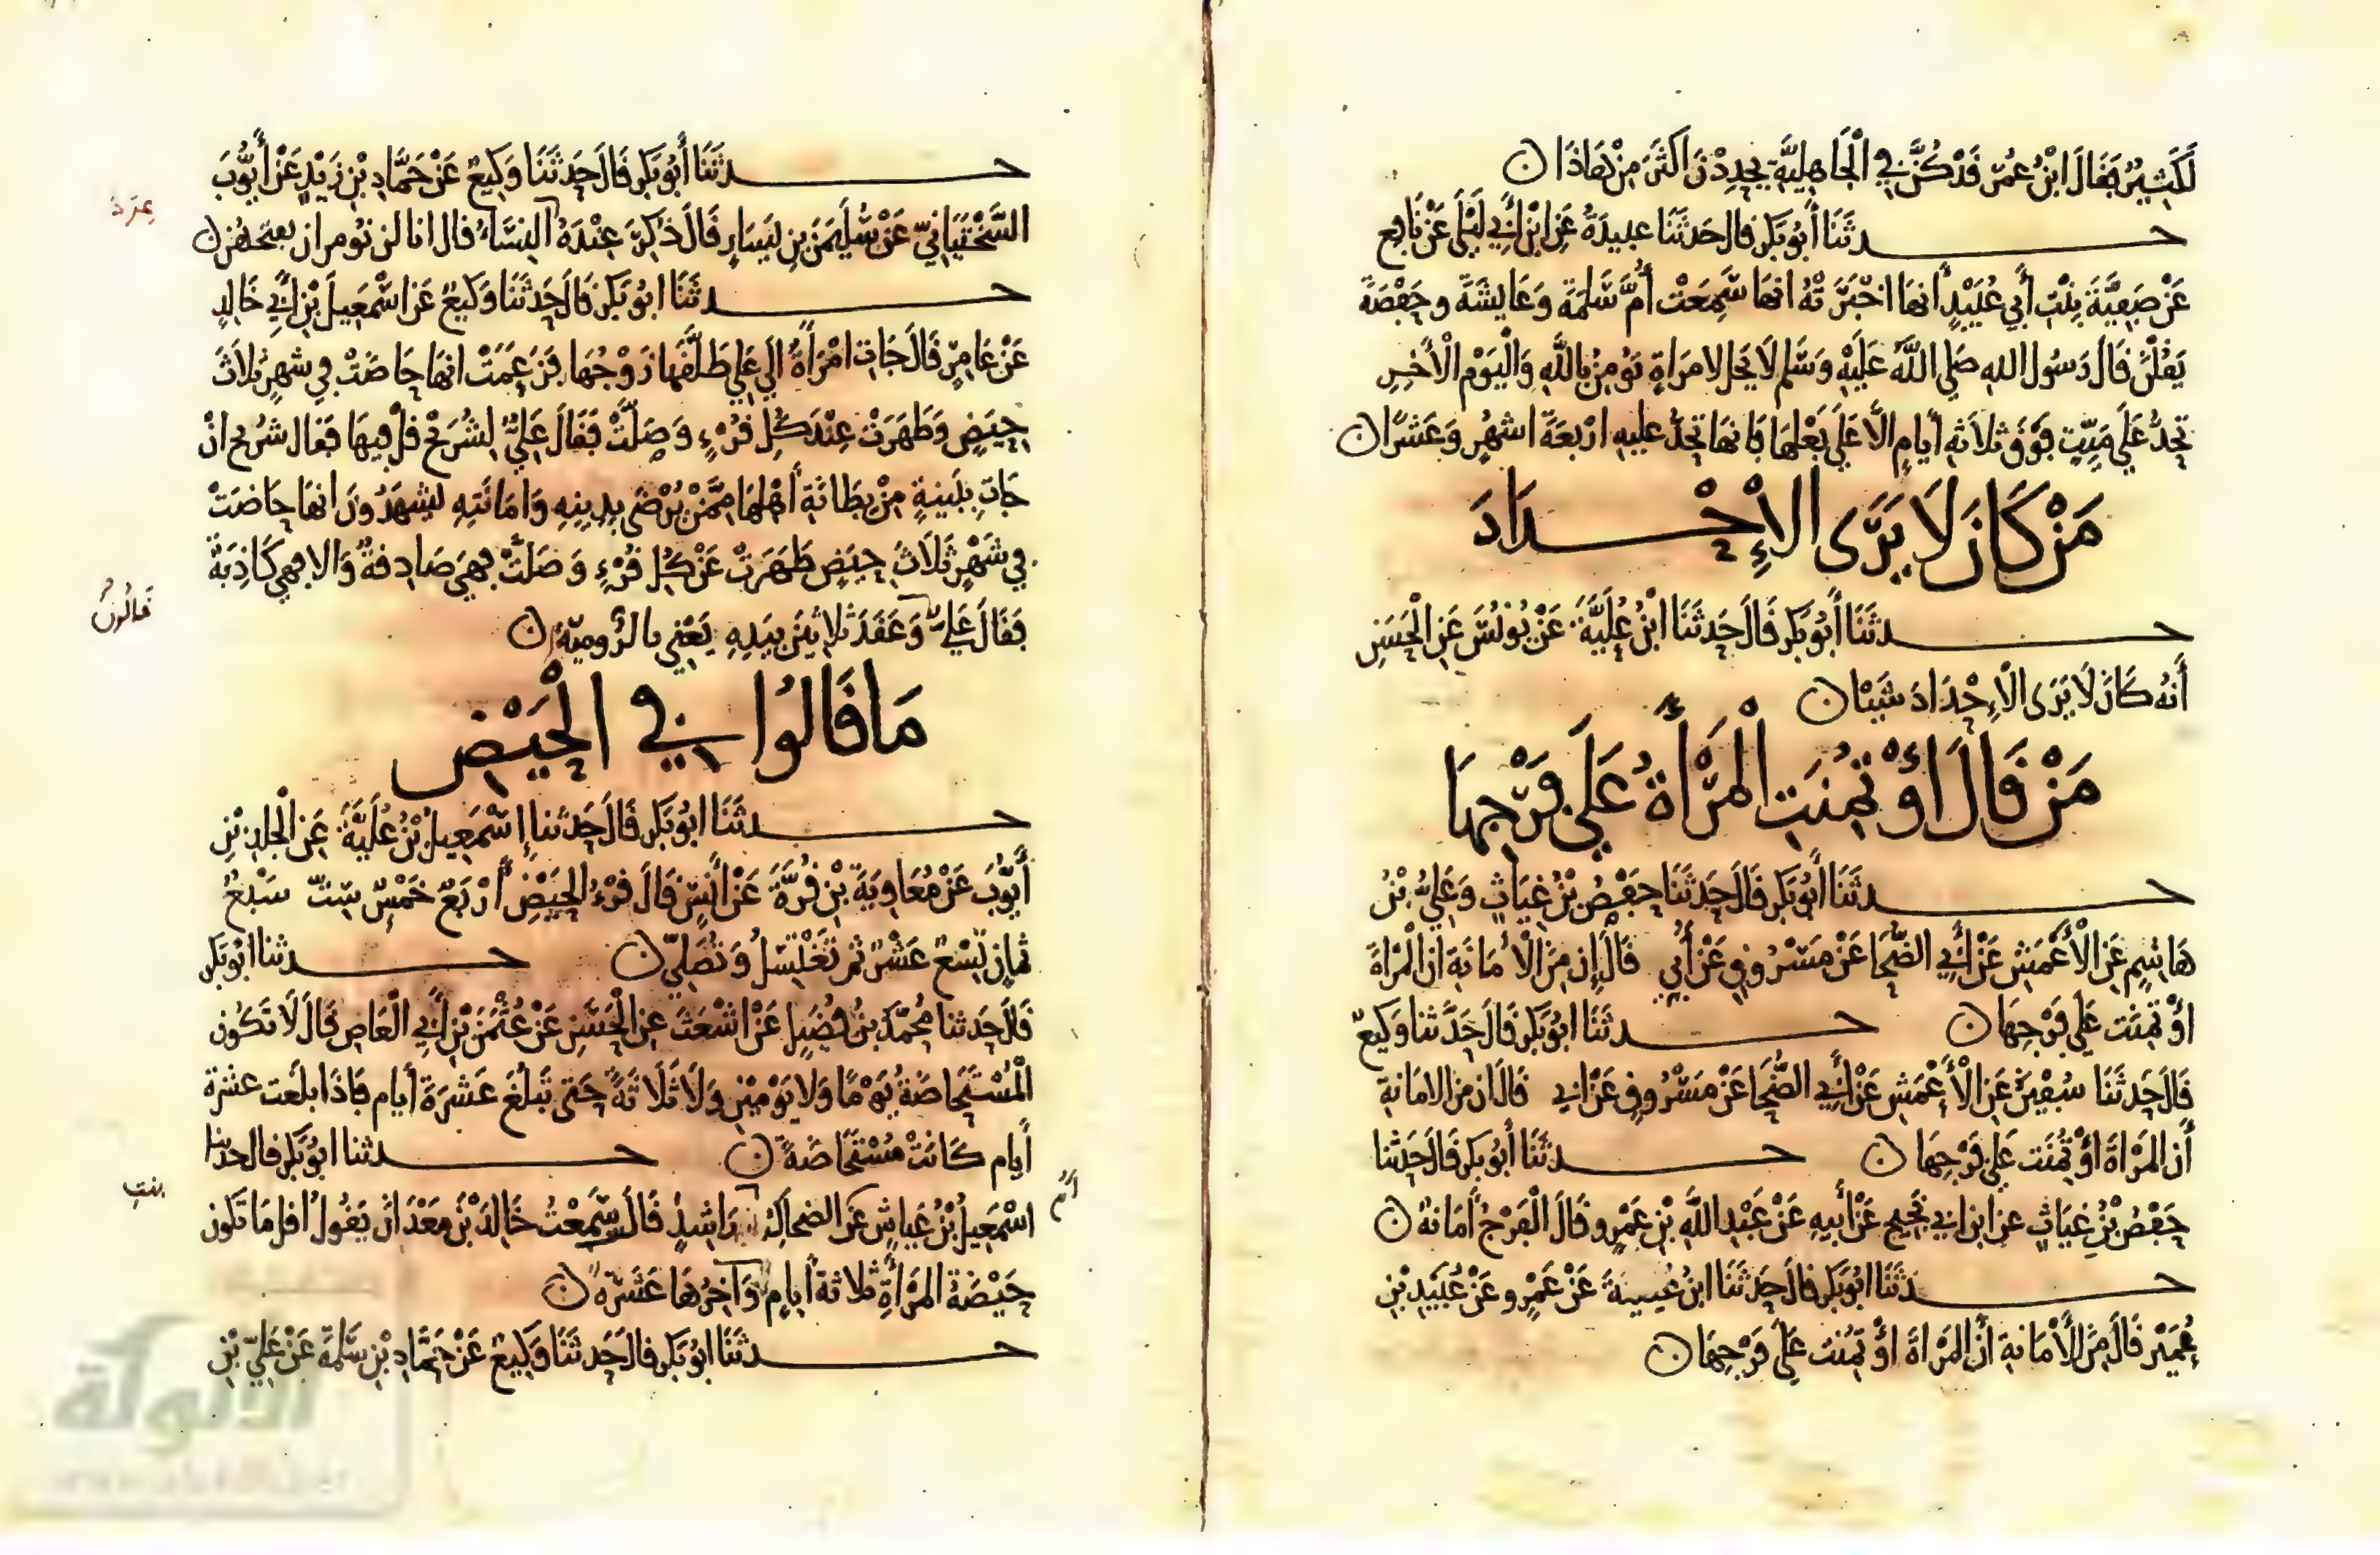 لَكَثِيرٌ فَقَالَ ابْنُ عُمَرَ قَدْ كُنَّ فِي الْجَاهِلِيَّةِ يحْدِدْنَ اكْثَرَ مِنْ هَاذَا ن
حدثَنَا أَبُو بَكْرٍ قال حَدثَنَا عبيدَةُ عَنِ ابْنِ أَبِي لَيْلَى عَنْ نَافِعٍ
عَنْ صَفِيَّةَ بِنْتِ أَبِي عُبَيْدٍ أنهَا اخْبَرَتْهُ انهَا سَمِعَتْ أُمَّ سَلَمَةَ وَعَايشَةَ وحَفْصَةَ
يَقُلْنَ قَالَ رَسُول اللهِ صَلى اللَّهُ عَلَيْهِ وَسَلم لَا يَحِل لامرَاةٍ تُومِنُ بِاللَّهِ وَالْيَوْمِ الْأخِرِ
تحِدُّ عَلَى مَيِّتٍ فَوْقَ ثلاثهِ أيامٍ الَّا عَلَى بَعْلِهَا فَانهَا تَحِدُّ عليهِ ارْبعَةَ اشهُرٍ وَعَشْرًا ن
مَنْ كَانَ لَا يَرَى الاِحْدَادَ
حدثَنَا أَبُو بَكْرٍ قَالَ حَدثَنَا ابْنُ عُلَيَّةَ عَنْ يُونُسَ عَنِ الْحَسَنِ
أَنهُ كَانَ لَا يَرَى الْاِحْدَادَ شَيْئا ن
مَنْ قَالَ اؤْتُمِنَتِ الْمَرْأَةُ عَلَى فَرْجِهَا
حدثَنَا أَبُو بَكْرٍ قَالَ حَدثَنَا حَفْصُ بْنُ غِيَاثٍ وَعَلِيُّ بْنُ
هَاشِمٍ عَنِ الْأَعْمَشِ عَنْ أَبِي الضُّحَا عَنْ مَسْرُوقٍ عَنْ أُبَيٍّ قَالَ إِن مِنَ الْأَمَانَةِ ان الْمَرْأةَ
اؤْتُمِنَت عَلَى فَرْجِهَا ن حدثَنَا ابُو بَكْرٍ قَالَ حَدَّثنا وَكِيعٌ
قَالَ حَدثَنَا سُفْيَنُ عَنِ الْأَعْمَشِ عَنْ أَبِي الضُّحَا عَنْ مَسْرُوقٍ عَنْ ابي قَالَ ان من الامَانةِ
أَن المَرْاةَ اؤْتُمِنَت عَلَى فَرْجِهَا ن حدثَنَا أَبُو بَكْرٍ قَالَ حَدثنا
حَفْصُ بْنُ غِيَاثٍ عن ابن ابي نَجِيحٍ عَنْ أَبِيهِ عَنْ عَبْدِ اللَّهِ بْنِ عَمْرٍو قَالَ الْفَرْجُ أَمَانةٌ ن
حدثَنَا ابُو بَكْرٍ قال حَدثَنَا ابنُ عُيينَةَ عَنْ عَمْرٍو عَنْ عُبَيْدِ بْنِ
عُمَيْرٍ قَالَ مِنَ الْأَمَانةِ أَن المَرْاةَ اؤْتُمِنَت عَلَى فَرْجِهَا ن
حدثَنَا أَبُو بَكْرٍ قَالَ حَدثَنَا وَكِيعٌ عَنْ حَمَّادِ بْنِ زَيْدٍ عَنْ أَيُّوبَ
السَّخْتِيَانِيِّ عَنْ سُلَيْمَنَ بنِ يَسَارٍ قَالَ ذُكِرَ عِنْدَهُ النِّسَاءُ قال انا لن نُومر ان نفتحهن ن
حدثَنَا ابُو بَكْرٍ قَالَ حَدثَنَا وَكيعٌ عَن اسْمَعِيلَ بْنِ أَبِي خَالِدٍ
عَنْ عَامِرٍ قَالَ جَاتِ امْرَأةٌ الَى عَلي طَلَّقَهَا زَوْجُهَا فَزَعَمَتْ انهَا حَاضَتْ فِي شهْرٍ ثَلَاثَ
حِيَضٍ وَطَهُرَتْ عِنْدَ كُلِّ قُرْءٍ وَصَلَّتْ فَقَالَ عَلِيٌّ لِشُرَيْحٍ قُلْ فِيهَا فَقال شُرَيح انْ
جَاتِ بِبَينةٍ مِنْ بِطَانَةِ أَهْلِهَا مِمَّنْ يُرْضَى بِدِينِهِ وَامَانَتِهِ يَشهَدُونَ انهَا حَاضَتْ
فِي شَهْرٍ ثَلَاثَ حِيَضٍ طَهُرَتْ عَنْ كُلِّ قُرْءٍ وَصَلتْ فهِيَ صَادِقةٌ وَالا فهي كَاذِبَةٌ
فَقَالَ عَليٌّ وَعَقَدَ ثلاثِينَ بِيَدِهِ يَعْنِي بالرُّومِيّة ن
قَالُونُ
مَا قَالُوا فِي الْحَيْضِ
حدثَنَا ابُو بَكْرٍ قَالَ حَدثنا إِسْمَعِيلُ بْنُ عُلَيَّةَ عَنِ الْجَلدِ بْنِ
أَيُّوبَ عَنْ مُعَاوِيَةَ بْنِ قُرَّةَ عَنْ أَنَسٍ قَالَ قُرْءُ الْحَيْضِ أَرْبَعٌ خَمْسٌ سِتٌّ سَبْعٌ
ثمانِ تِسْعٌ عَشْرٌ ثُم تَغْتَسِلُ وَتُصَلِّي ن حدثنا ابُو بَكْرٍ
قَالَ حَدثنا مُحَمَّدُ بنُ فُضَيلٍ عَنْ اشْعَثَ عنِ الْحَسَنِ عَنْ عُثْمَنَ بْنِ أَبِي الْعَاصِ قَالَ لَا تَكُون
الْمُسْتَحَاضَةُ يَوْمًا وَلا يَوْمَيْنِ وَلَا ثَلَاثَةً حَتى تَبْلُغَ عَشَرَةَ أيام فَاذَا بلَغت عشرة
أَيام كَانَتْ مُسْتَحَاضَةً ن حدثنا ابُو بَكْرٍ قال حدثنا
بنت
اسْمَعِيلُ بْنُ عَياشٍ عَن الضحاكِ رَاشدٍ قَالَ سَمِعْتُ خَالِدَ بْنَ مَعْدَانَ يَقُولُ اقل مَا تَكُون
حَيْضَةُ المَرْأَةِ ثلاثة أَيامٍ وَآخِرُهَا عَشَرَة ن
حدثَنَا ابُو بَكْرٍ قال حَدثَنَا وَكِيعٌ عَنْ حَمَّادِ بْنِ سَلَمَةَ عَنْ عَلِيِّ بْنِ
الألوكة